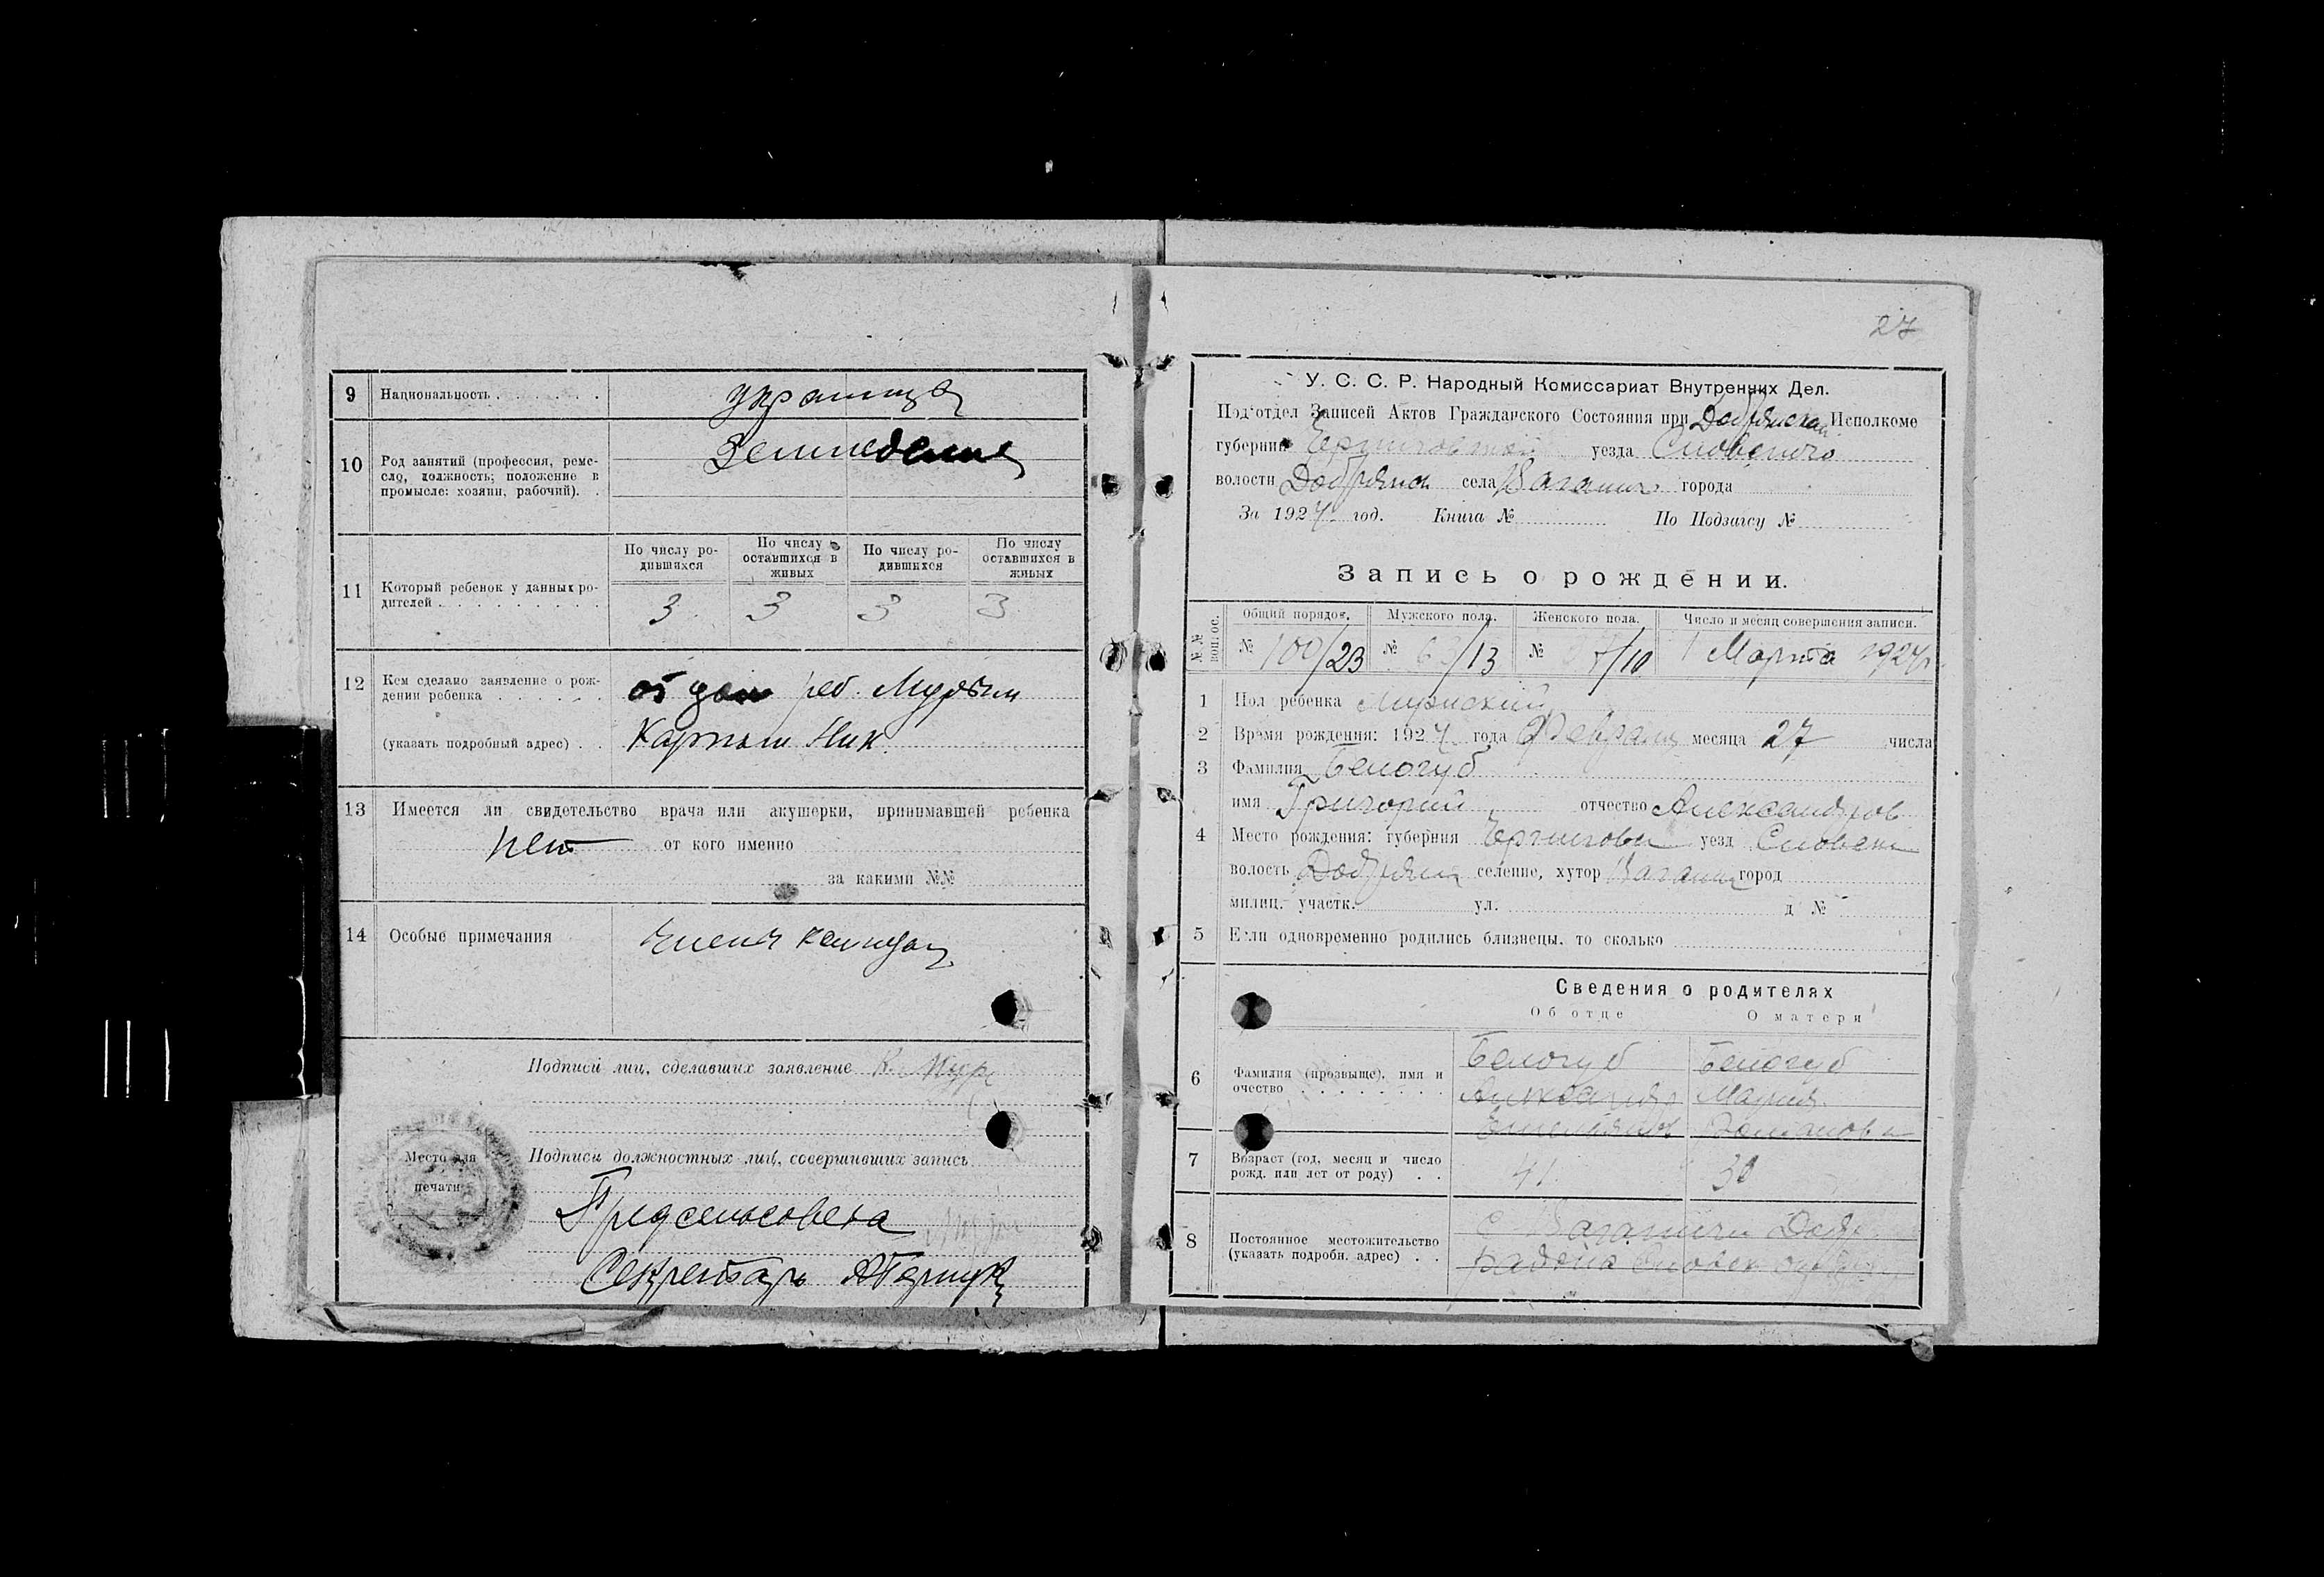 9 Национальность . . . . . . украинца
10 Род занятий (профессия, реме-
сло, должность; положение в
промысле: хозяин, рабочий). .
Земледелие
11 Который ребенок у данных ро-
дителей . . . . . . . . .
По числу ро-
дившихся
По числу
оставшихся в
живых
По числу ро-
дившихся
По числу
оставшихся в
живых
3 3 3 3
12 Кем сделано заявление о рож-
дении ребенка . . . . . .
(указать подробный адрес) . .
13 Имеется ли свидетельство врача или акушерки, принимавшей ребенка
нет от кого именно
за какими №№
14 Особые примечания
Подписи лиц, сделавших заявление К.
Место для
печати
Подписи должностных лиц, совершивших запись
Предсельсовета
Секретарь
27
У. С. С. Р. Народный Комиссариат Внутренних Дел.
Под'отдел Записей Актов Гражданского Состояния при Добрянском Исполкоме
губернии Черниговской уезда Сновского
волости Добрянск села Ваганичи города
За 1924 год. Книга № По Подзагсу №
Запись о рождении.
№№ по п. ос.
Общий порядок. Мужского пола. Женского пола. Число и месяц совершения записи.
№ 100/23 № /13 № /10 1 Марта 1924 г.
1 Пол ребенка Мужской
2 Время рождения: 1924 года Февраля месяца 27 числа
3 Фамилия Белогуб
имя Григорий отчество Александров
4 Место рождения: губерния Чернигови уезд Сновск
волость Добрянск селение, хутор Ваганичи город
милиц. участк. ул. д №
5 Если одновременно родились близнецы, то сколько
Сведения о родителях
Об отце О матери
6 Фамилия (прозвыще), имя и
очество . . . . . . .
Белогуб Белогуб
Александр Мария
Емельянов Романовн
7 Возраст (год, месяц и число
рожд. или лет от роду) . .
41 30
8 Постоянное местожительство
(указать подробн. адрес) . .
с Ваганичи Добр